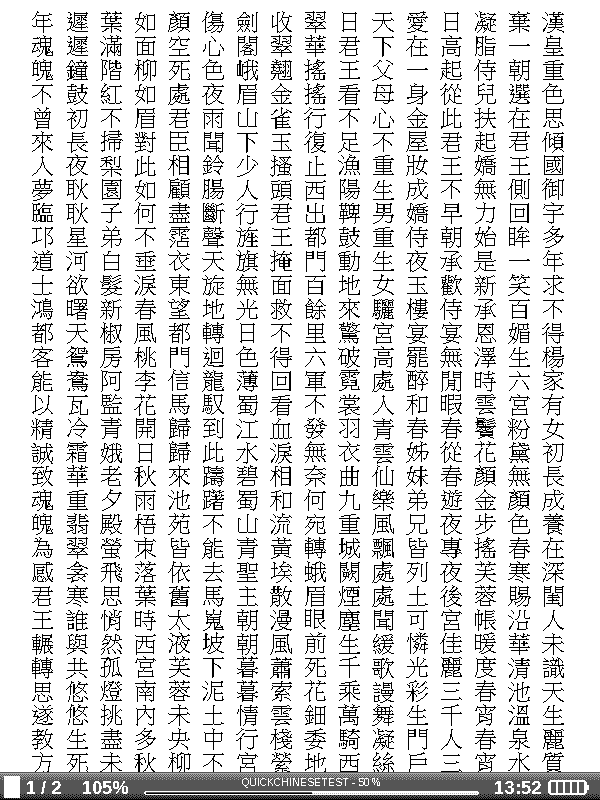 漢皇重色思傾國御宇多年求不得楊家有女初長成養在深閨人未識天生麗質
棄一朝選在君王側回眸一笑百媚生六宮粉黛無顏色春寒賜浴華清池溫泉水
凝脂侍兒扶起嬌無力始是新承恩澤時雲鬢花顏金步搖芙蓉帳暖度春宵春宵
日高起從此君王不早朝承歡侍宴無閒暇春從春遊夜專夜後宮佳麗三千人三
愛在一身金屋妝成嬌侍夜玉樓宴罷醉和春姊妹弟兄皆列土可憐光彩生門戶
天下父母心不重生男重生女驪宮高處入青雲仙樂風飄處處聞緩歌謾舞凝絲
日君王看不足漁陽鞞鼓動地來驚破霓裳羽衣曲九重城闕煙塵生千乘萬騎西
翠華搖搖行復止西出都門百餘里六軍不發無奈何宛轉蛾眉眼前死花鈿委地
收翠翹金雀玉搔頭君王掩面救不得回看血淚相和流黃埃散漫風蕭索雲棧縈
劍閣峨眉山下少人行旌旗無光日色薄蜀江水碧蜀山青聖主朝朝暮暮情行宮
傷心色夜雨聞鈴腸斷聲天旋地轉迴龍馭到此躊躇不能去馬嵬坡下泥土中不
顏空死處君臣相顧盡霑衣東望都門信馬歸歸來池苑皆依舊太液芙蓉未央柳
如面柳如眉對此如何不垂淚春風桃李花開日秋雨梧束落葉時西宮南內多秋
葉滿階紅不掃梨園子弟白髮新椒房阿監青娥老夕殿螢飛思悄然孤燈挑盡未
遲遲鐘鼓初長夜耿耿星河欲曙天鴛鴦瓦冷霜華重翡翠衾寒誰與共悠悠生死
年魂魄不曾來入夢臨邛道士鴻都客能以精誠致魂魄為感君王輾轉思遂教方
1 / 2 105% QUICKCHINESETEST - 50% 13:52